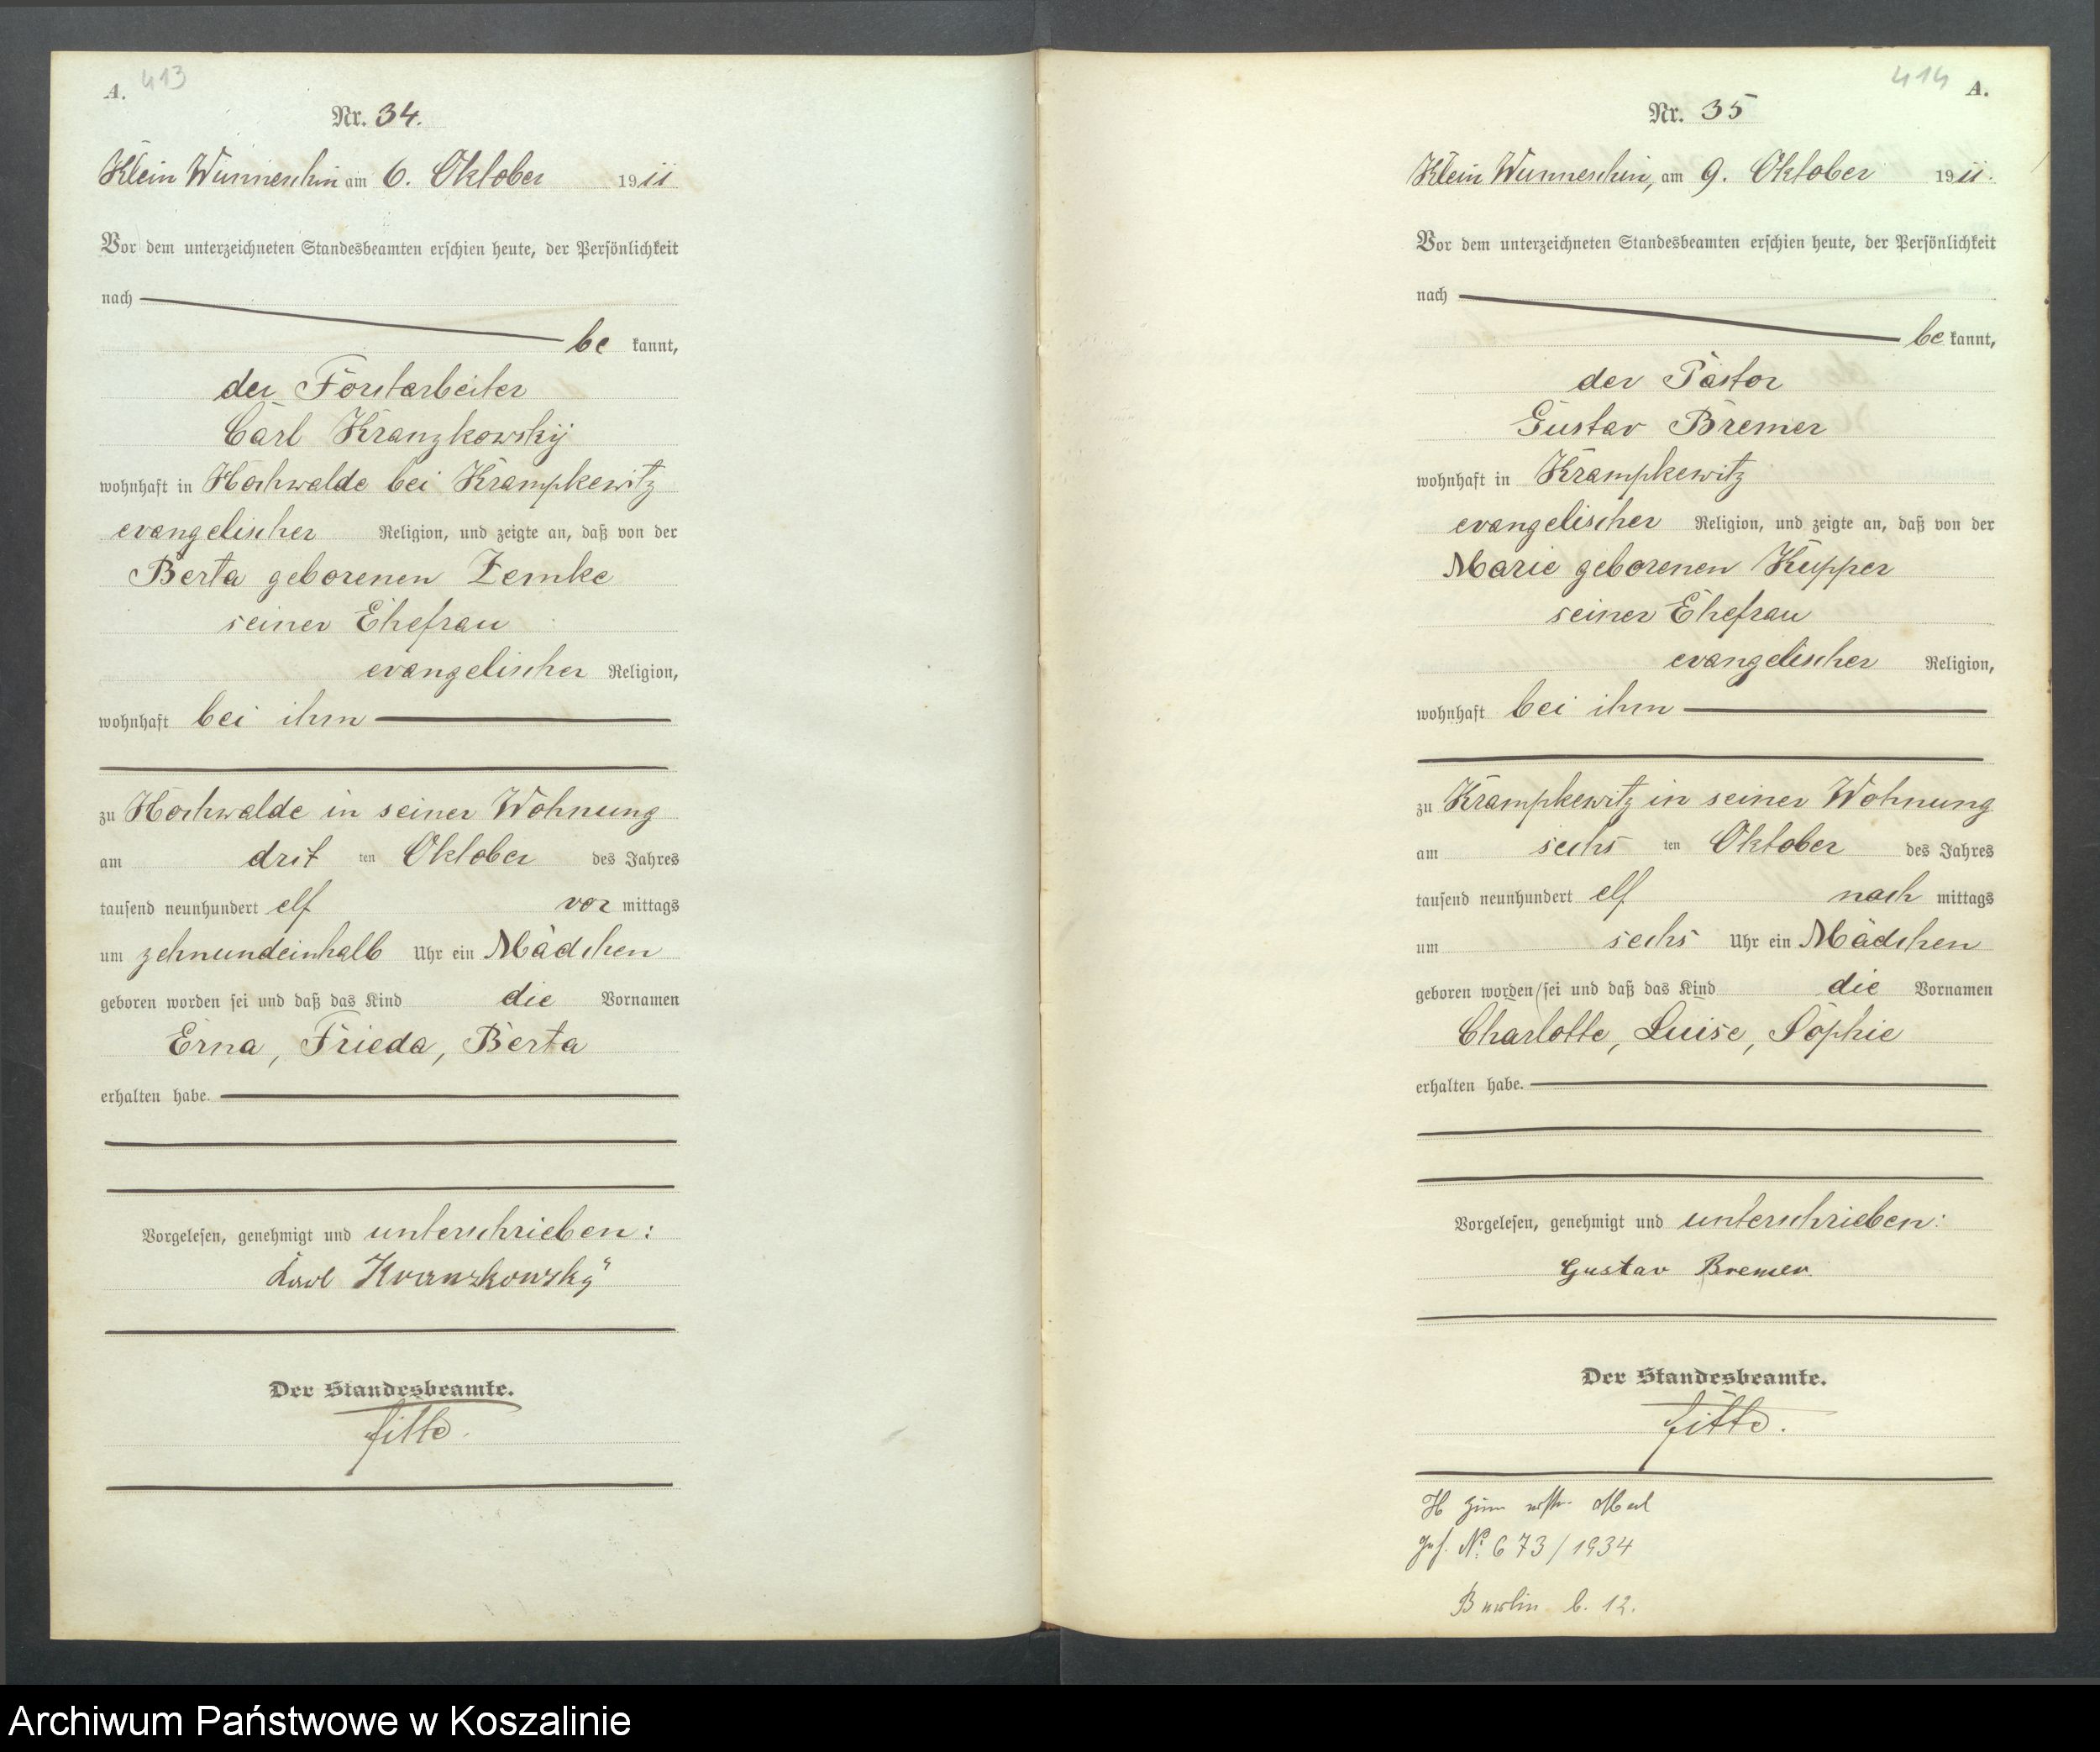 A. 413
Nr. 34.
Klein Wunneschin am 6. Oktober 1911
Vor dem unterzeichneten Standesbeamten erschien heute, der Persönlichkeit
nach
be kannt,
der Forstarbeiter
Carl Kranzkowsky
wohnhaft in Hochwalde bei Krampkewitz
evangelischer Religion, und zeigte an, daß von der
Berta geborenen Zemke
seiner Ehefrau
evangelischer Religion,
wohnhaft bei ihm
zu Hochwalde in seiner Wohnung
am drit ten Oktober des Jahres
tausend neunhundert elf vor mittags
um zehnundeinhalb Uhr ein Mädchen
geboren worden sei und daß das Kind die Vornamen
Erna, Frieda, Berta
erhalten habe.
Vorgelesen, genehmigt und unterschrieben:
Karl Kranzkowsky
Der Standesbeamte.
414 A.
Nr. 35
Klein Wunneschin, am 9. Oktober 1911.
Vor dem unterzeichneten Standesbeamten erschien heute, der Persönlichkeit
nach
be kannt,
der Pastor
Gustav Bremer
wohnhaft in Krampkewitz
evangelischer Religion, und zeigte an, daß von der
Marie geborenen Küpper
seiner Ehefrau
evangelischer Religion,
wohnhaft bei ihm
zu Krampkewitz in seiner Wohnung
am sechs ten Oktober des Jahres
tausend neunhundert elf nach mittags
um sechs Uhr ein Mädchen
geboren worden sei und daß das Kind die Vornamen
Charlotte, Luise, Sophie
erhalten habe.
Vorgelesen, genehmigt und unterschrieben:
Gustav Bremer.
Der Standesbeamte.
H
No. 673/1934
Berlin 12.
Archiwum Państwowe w Koszalinie